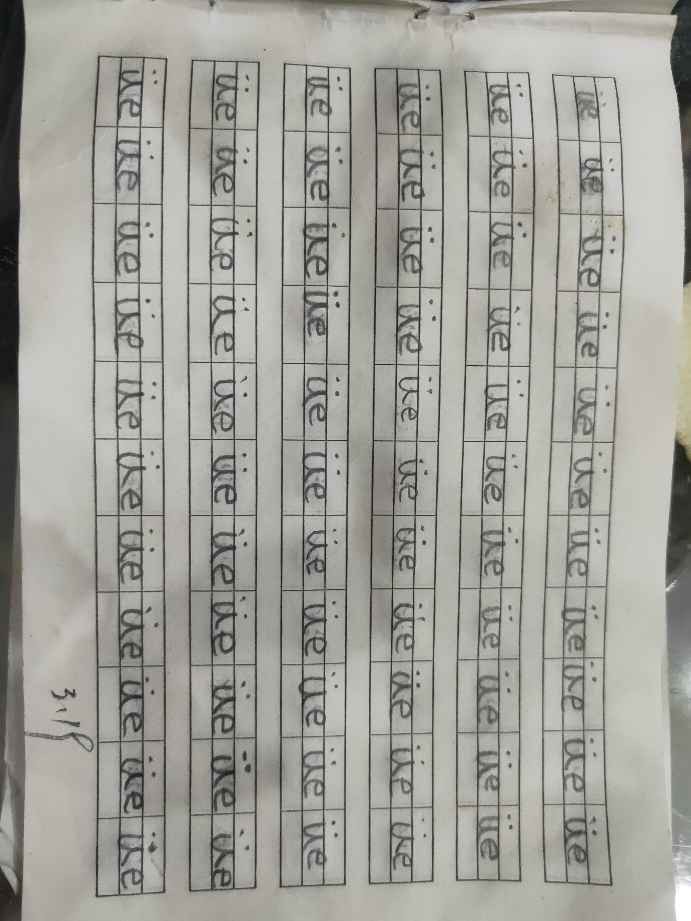 üe üe üe üe üe üe üe üe üe üe üe
üe üe üe üe üe üe üe üe üe üe üe
üe üe üe üe üe üe üe üe üe üe üe
üe üe üe üe üe üe üe üe üe üe üe
üe üe üe üe üe üe üe üe üe üe üe
üe üe üe üe üe üe üe üe üe üe üe
3.18